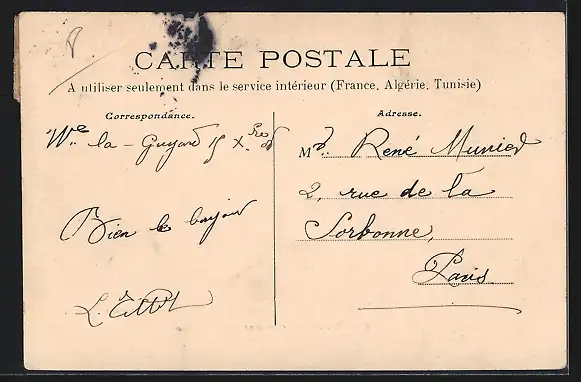 CARTE POSTALE
A utiliser seulement dans le service intérieur (France, Algérie, Tunisie)
Correspondance.
la - Guyard 15 X
Bien le bonjour
Adresse.
M René Munier
2, rue de la
Sorbonne,
Paris